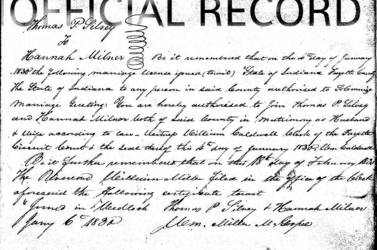 OFFICIAL RECORD
Thomas P. Silvey
To
Hannah Milner Be it remembered that on the 4th day of January
1832 the following marriage license issued State of Indiana Fayette County
The State of Indiana to any person in said County authorised to Solemnize
Marriage Greeting: You are hereby authorised to Join Thomas P. Silvey
and Hannah Milner both of Said County in matrimony as Husband
& Wife according to law Witness William Caldwell Clerk of the Fayette
Circuit Court & the seal this 4th day of January 1832 Wm Caldwell
Be it further remembered that on this 18th day of February 1832
The Reverend William Miller filed in the Office of the Clerk
aforesaid the following certificate
Joined in Wedlock Thomas P. Silvey & Hannah Milner
Jany 6th 1832 Wm. Miller M. Gospel